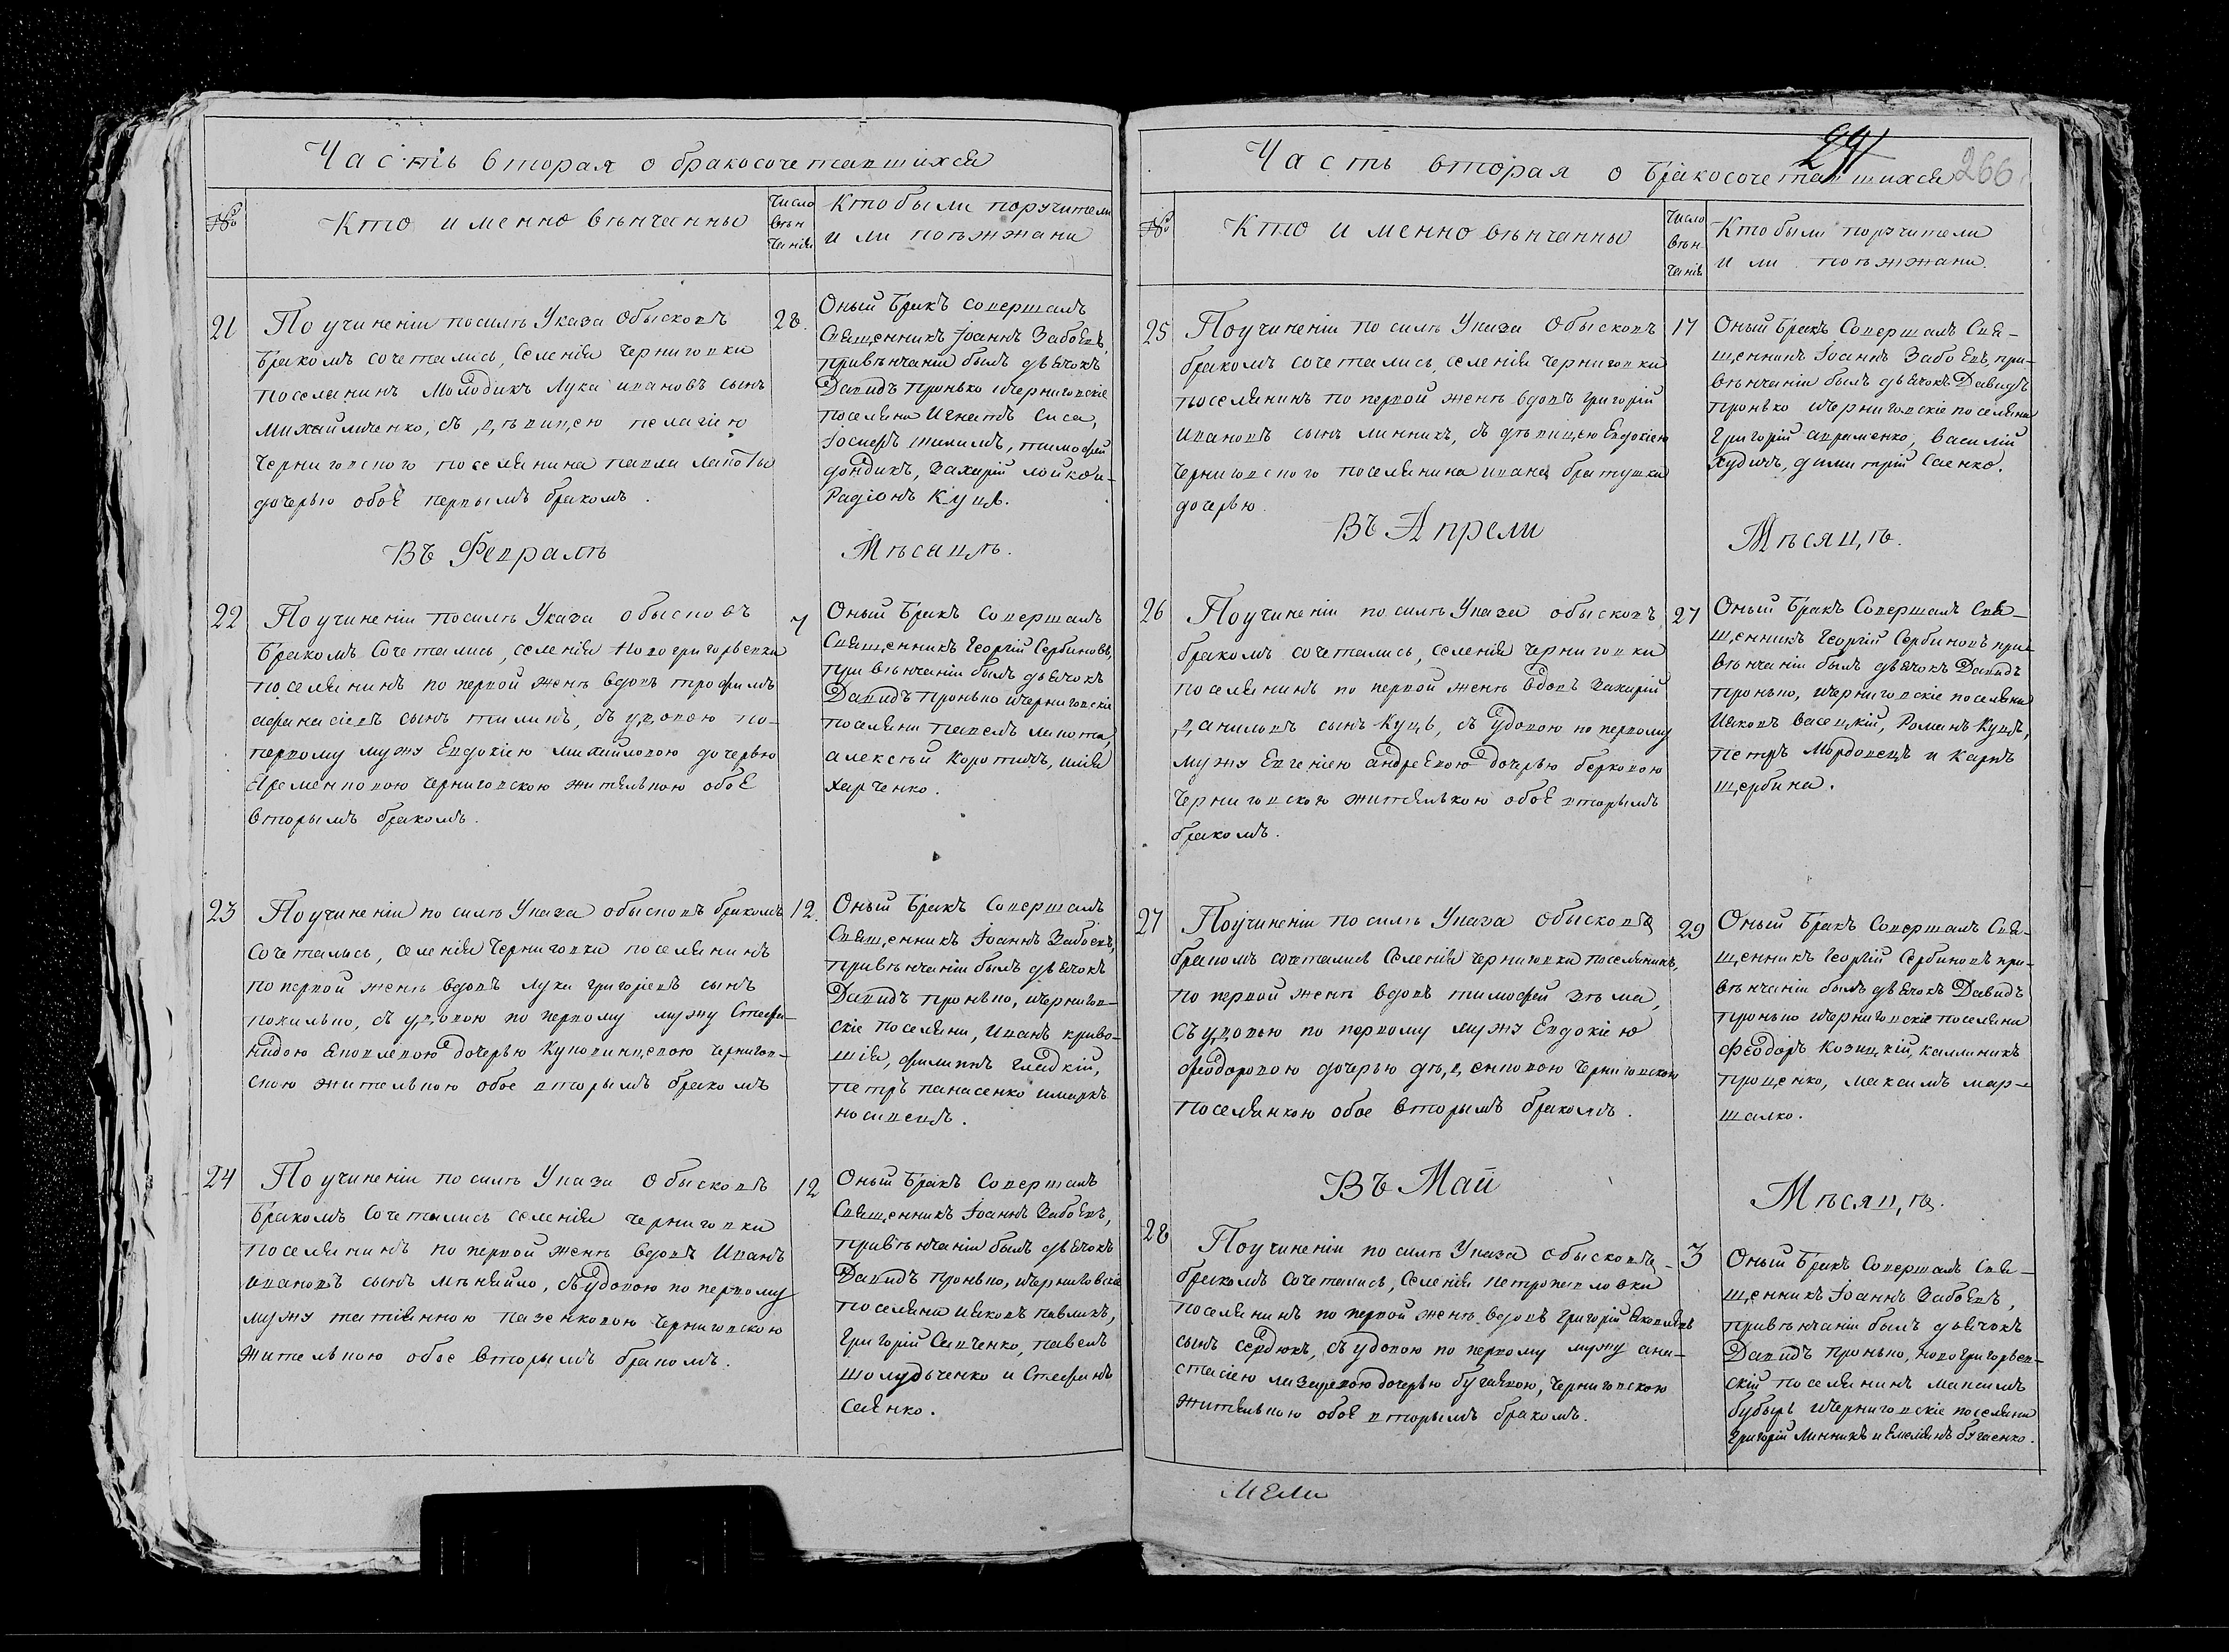 Часть вторая о бракосочетавшихся
№
Кто именно вѣнчанны
Число
вѣн
чанія
Кто были поручители
или поѣжжани
21
По учиненіи по силѣ Указа обысковъ
бракомъ сочетались, селенія Черниговки
поселянинъ Молодикъ Лука ивановъ сынъ
Михайличенко, съ дѣвицею пелагіею
Черниговского поселянина павла лапоты
дочерью обоє первымъ бракомъ.
28.
Оный бракъ совершалъ
Священникъ Іоаннъ Забоєвъ,
при вѣнчаніи былъ дьячокъ
Давидъ Пронько и черниговскіе
поселяне Игнатъ Сиса,
Іосифъ шилимъ, тимофей
дондикъ, Захарій лойко и
Радіонъ Куцъ.
Въ Февралѣ
Мѣсяцѣ.
22
По учиненіи по силѣ Указа обысковъ
бракомъ сочетались, селенія Новогригорьевки
поселянинъ по первой женѣ вдовъ трофимъ
афанасіевъ сынъ тилинъ, съ удовою по
первому мужу Евдокією михайловою дочерью
Яременковою черниговскою жителькою обоє
вторымъ бракомъ.
7
Оный бракъ совершалъ
Священникъ Георгій Сербиновъ,
при вѣнчаніи былъ дьячокъ
Давидъ Пронько и черниговскіе
поселяни павелъ лапота,
алексѣй коротичъ, илія
харченко.
23
По учиненіи по силѣ Указа обысковъ бракомъ
сочетались, селенія Черниговки поселянинъ
по первой женѣ вдовъ лука григоріевъ сынъ
покилько, съ удовою по первому мужу Стефа-
нидою яковлевою дочерью Куповинцевою чернигов-
скою жителькою обое вторымъ бракомъ
12.
Оный бракъ совершалъ
Священникъ Іоаннъ Забоєвъ,
при вѣнчаніи былъ дьячокъ
Давидъ Пронько, и чернигов-
скіе поселяни, Иванъ криво-
шія, филиппъ гладкій,
петръ панасенко и маркъ
носивецъ.
24
По учиненіи по силѣ Указа обысковъ
бракомъ сочетались селенія черниговки
поселянинъ по первой женѣ вдовъ Иванъ
ивановъ сынъ мѣняйло, съ удовою по первому
мужу татіянною пазенковою Черниговскою
жителькою обое вторымъ бракомъ.
12
Оный бракъ совершалъ
Священникъ Іоаннъ Забоєвъ,
при вѣнчаніи былъ дьячокъ
Давидъ Пронько, и черниговскіе
поселяни яковъ павликъ,
Григорій Савченко, павелъ
шолудьченко и Стефанъ
Саєнко.
Часть вторая о бракосочетавшихся
266
№
Кто именно вѣнчанны
Число
вѣн
чанія
Кто были поручители
или поѣжжани.
25
По учиненіи по силѣ Указа обысковъ
бракомъ сочетались, селенія черниговки
поселянинъ по первой женѣ вдовъ григорій
ивановъ сынъ линникъ, съ дѣвицею Евдокією
черниговского поселянина ивана братушки
дочерью.
17
Оный бракъ Совершалъ Свя-
щенникъ Іоаннъ Забоєвъ, при
вѣнчаніи былъ дьячокъ Давидъ
Пронько и черниговскіе поселяни
Григорій авраменко, василій
худичъ, димитрій Саенко.
Въ Апрели
Мѣсяцѣ.
26
По учиненіи по силѣ Указа обысковъ
бракомъ сочетались, селенія черниговки
поселянинъ по первой женѣ вдовъ Захарій
даниловъ сынъ Куцъ, съ удовою по первому
мужу Евгенією андреєвою дочерью берковою
черниговскою жителькою обоє вторымъ
бракомъ.
27
Оный бракъ Совершалъ Свя-
щенникъ Георгій Сербиновъ при
вѣнчаніи былъ дьячокъ Давидъ
Пронько, и черниговскіе поселяни
Яковъ васецкій, Романъ Куцъ,
петръ Мордовецъ и карпъ
щербина.
27
По учиненіи по силѣ Указа обысковъ
бракомъ сочетались Селенія черниговки поселянинъ,
по первой женѣ вдовъ тимофей зѣма,
съ удовью по первому мужу Евдокією
феодоровою дочерью дѣденковою черниговскою
поселянкою обое вторымъ бракомъ.
29
Оный бракъ Совершалъ Свя-
щенникъ Георгій Сербиновъ при
вѣнчаніи былъ дьячокъ Давидъ
Пронько и черниговскіе поселяни
феодоръ козицкій, каллиникъ
проценко, максимъ мар-
шалко.
Въ Май
Мѣсяцѣ.
28
По учиненіи по силѣ Указа обысковъ
бракомъ сочетались, Селенія петропавловки
поселянинъ по первой женѣ вдовъ григорій яковлевъ
сынъ сердюкъ, съ удовою по первому мужу ана-
стасією лазаревою дочерью бугаєвою, черниговскою
жителькою обоє вторымъ бракомъ.
3
Оный бракъ Совершалъ Свя-
щенникъ Іоаннъ Забоєвъ,
при вѣнчаніи былъ дьячокъ
Давидъ Пронько, новогригорьев-
скій поселянинъ максимъ
бубырь и черниговскіе поселяни
Григорій Линникъ и Емеліянъ бугаенко.